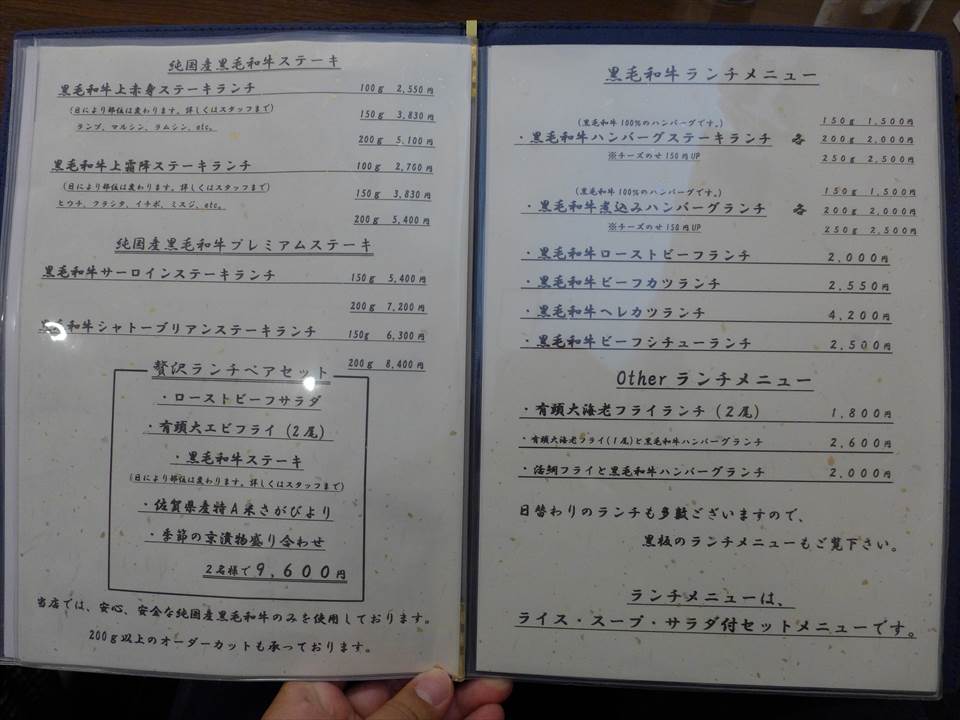 純国産黒毛和牛ステーキ
黒毛和牛上赤身ステーキランチ 100g 2,550円
(日により部位は変わります。詳しくはスタッフまで) 150g 3,830円
ランプ、マルシン、ラムシン、etc。
200g 5,100円
黒毛和牛上霜降ステーキランチ 100g 2,700円
(日により部位は変わります。詳しくはスタッフまで) 150g 3,830円
ヒウチ、フランタ、イチボ、ミスジ、etc。
200g 5,400円
純国産黒毛和牛プレミアムステーキ
黒毛和牛サーロインステーキランチ 150g 5,400円
200g 7,200円
黒毛和牛シャトーブリアンステーキランチ 150g 6,300円
200g 8,400円
贅沢ランチペアセット
・ローストビーフサラダ
・有頭大エビフライ(2尾)
・黒毛和牛ステーキ
(日により部位は変わります。詳しくはスタッフまで)
・佐賀県産特A米さがびより
・季節の京漬物盛り合わせ
2名様で 9,600円
当店では、安心、安全な純国産黒毛和牛のみを使用しております。
200g以上のオーダーカットも承っております。
黒毛和牛ランチメニュー
(黒毛和牛100%のハンバーグです。) 150g 1,500円
・黒毛和牛ハンバーグステーキランチ 各 200g 2,000円
※チーズのせ150円UP 250g 2,500円
(黒毛和牛100%のハンバーグです。) 150g 1,500円
・黒毛和牛煮込みハンバーグランチ 各 200g 2,000円
※チーズのせ150円UP 250g 2,500円
・黒毛和牛ローストビーフランチ 2,000円
・黒毛和牛ビーフカツランチ 2,550円
・黒毛和牛ヘレカツランチ 4,200円
・黒毛和牛ビーフシチューランチ 2,500円
Otherランチメニュー
・有頭大海老フライランチ(2尾) 1,800円
・有頭大海老フライ(1尾)と黒毛和牛ハンバーグランチ 2,600円
・活鯛フライと黒毛和牛ハンバーグランチ 2,000円
日替わりのランチも多数ございますので、
黒板のランチメニューもご覧下さい。
ランチメニューは、
ライス・スープ・サラダ付セットメニューです。